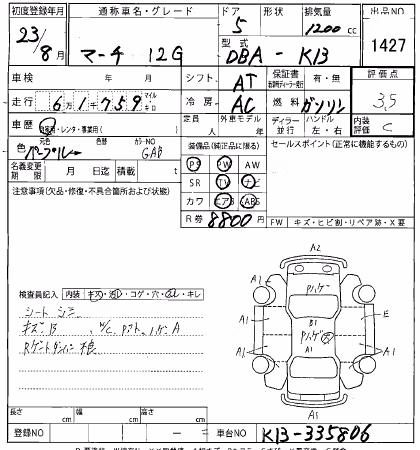 初度登録年月 通称車名・グレード ドア 形状 排気量 出品NO
23/8月 マーチ 12G 5 1200cc 1427
型式 DBA - K13
車検 年 月 シフト AT 保証書 有・無 評価点
走行 6 1 7 5 9 マイル キロ 冷房 AC 燃料 ガソリン 3.5
車歴 自家用・レンタ・事業用( ) 定員 人 外車モデル 年 ディーラー 並行 ハンドル 左・右 内装評価 C
色 元色 パープル 色替 カラーNO GAB 装備品(純正品に限る) セールスポイント(正常に機能するもの)
名義変更期限 月 日迄 積載 t PS PW AW
注意事項(欠品・修復・不具合箇所および状態) SR TV ナビ
カワ エアB ABS
R券 8800円 FW キズ・ヒビ割・リペア跡・X要
A2
検査員記入 内装 キズ・汚レ・コゲ・穴・スレ・キレ
シート シミ
キズ
A1 A1 Pハゲ A1 E
B1
Pハゲ
A1 A1 A1 A1
A1
長さ cm 幅 cm 高さ cm
登録NO 車台NO K13-335806